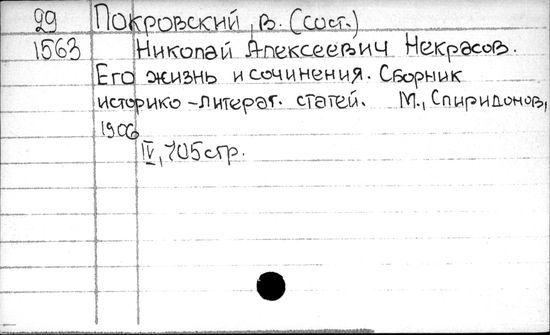 29 Покровский, В. (сост.)
1563 Николай Алексеевич Некрасов.
Его жизнь и сочинения. Сборник
историко-литерат. статей. М., Спиридонов,
1906
IV, 705 стр.